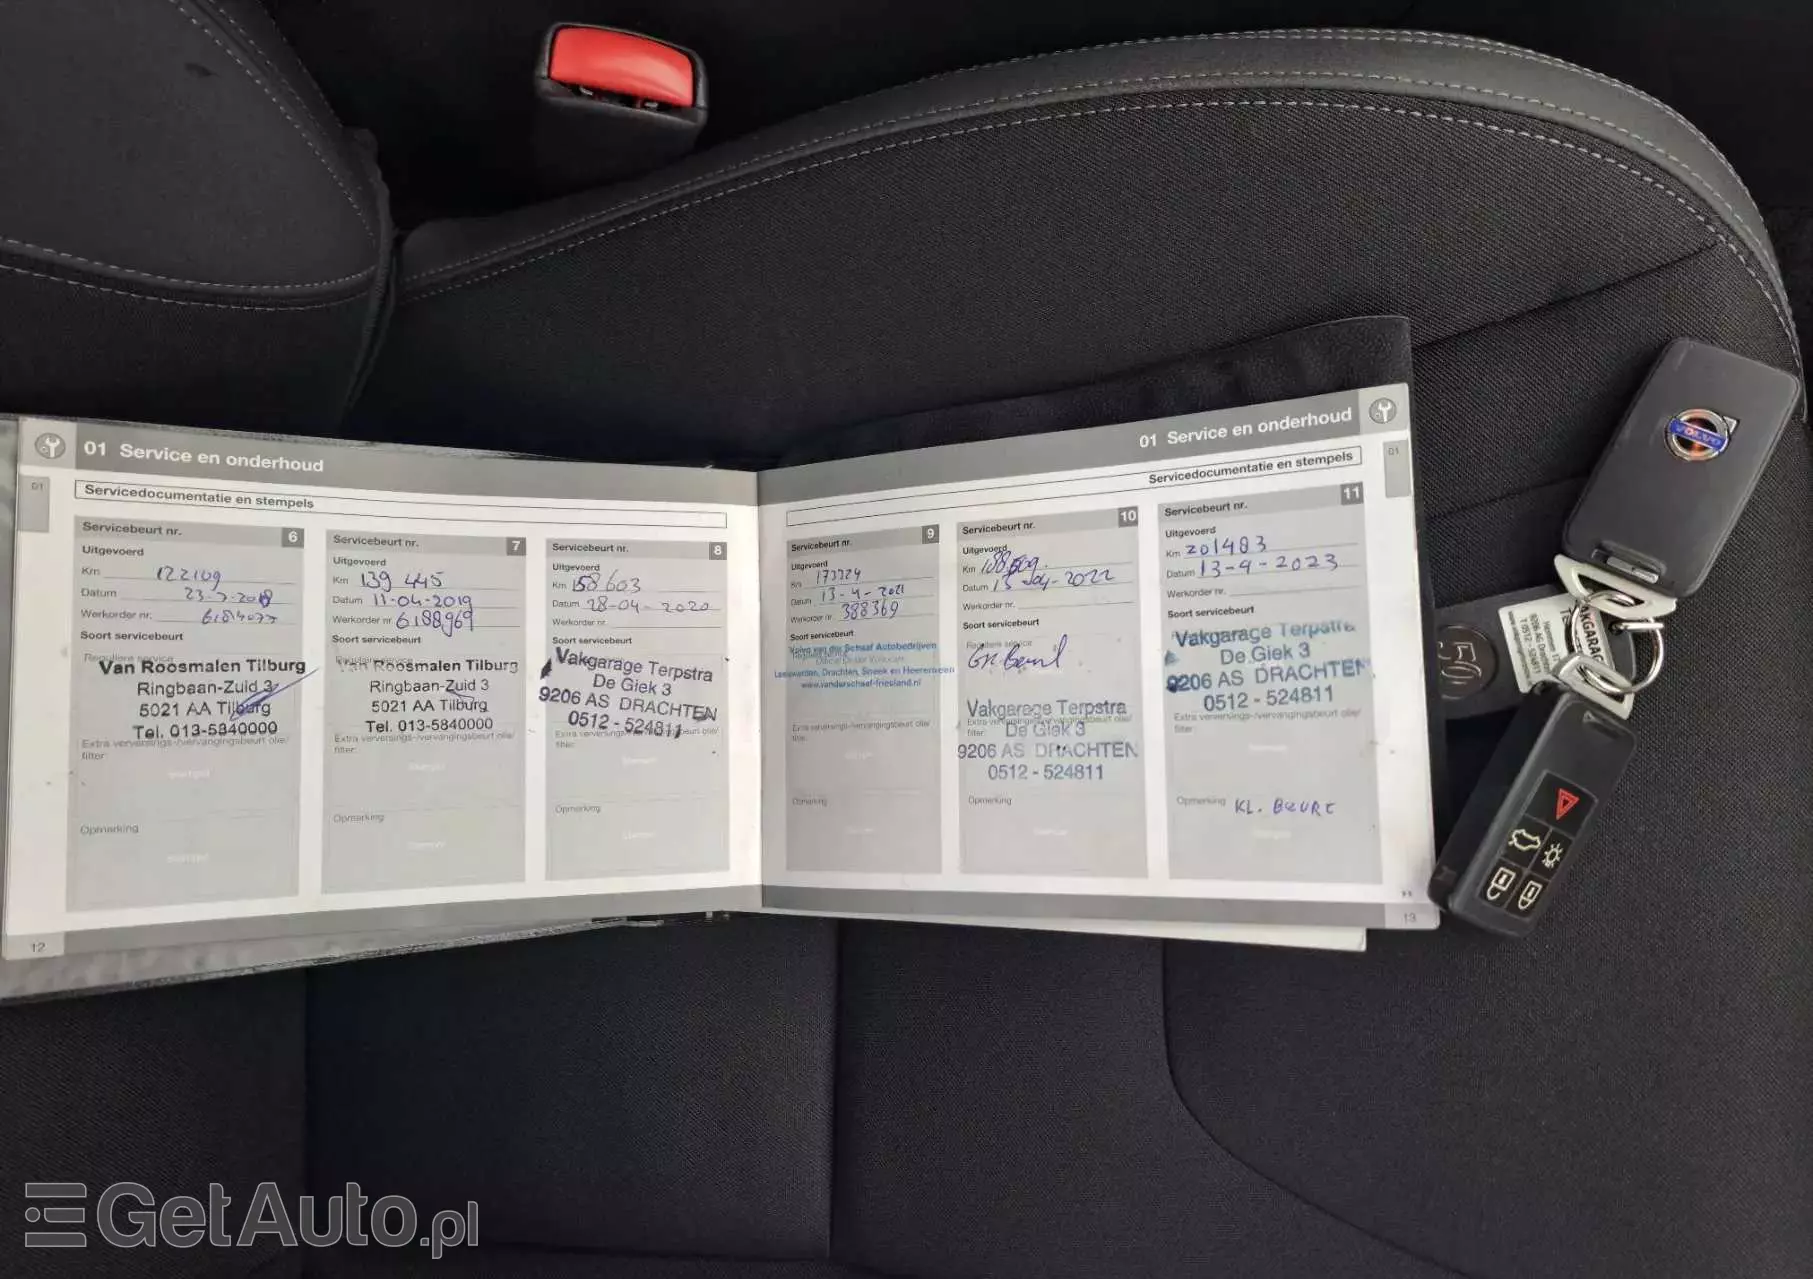 01 Service en onderhoud
01
Servicedocumentatie en stempels
Servicebeurt nr. 6
Uitgevoerd
Km 122109
Datum 23-7-2018
Werkorder nr.
Soort servicebeurt
Reguliere service
Van Roosmalen Tilburg
Ringbaan-Zuid 3
5021 AA Tilburg
Tel. 013-5840000
Extra verversings-/vervangingsbeurt olie/
filter:
Opmerking
12
Servicebeurt nr. 7
Uitgevoerd
Km 139 445
Datum 11-04-2019
Werkorder nr. 6188969
Soort servicebeurt
Van Roosmalen Tilburg
Ringbaan-Zuid 3
5021 AA Tilburg
Tel. 013-5840000
Extra verversings-/vervangingsbeurt olie/
filter:
Opmerking
Servicebeurt nr. 8
Uitgevoerd
Km 158603
Datum 28-04-2020
Werkorder nr.
Soort servicebeurt
Vakgarage Terpstra
De Giek 3
9206 AS DRACHTEN
0512 - 524811
Extra verversings-/vervangingsbeurt olie/
filter:
Opmerking
01 Service en onderhoud
01
Servicedocumentatie en stempels
Servicebeurt nr. 9
Uitgevoerd
Km
Datum 13-4-2021
Werkorder nr. 388369
Soort servicebeurt
Volvo van der Schaaf Autobedrijven
Leeuwarden, Drachten, Sneek en Heerenveen
www.vanderschaaf-friesland.nl
Extra verversings-/vervangingsbeurt olie/
filter:
Opmerking
Servicebeurt nr. 10
Uitgevoerd
Km
Datum 13-04-2022
Werkorder nr.
Soort servicebeurt
Reguliere service
Vakgarage Terpstra
Extra verversings-/vervangingsbeurt olie/
filter:
De Giek 3
9206 AS DRACHTEN
0512 - 524811
Opmerking
Servicebeurt nr. 11
Uitgevoerd
Km 201483
Datum 13-4-2023
Werkorder nr.
Soort servicebeurt
Vakgarage Terpstra
De Giek 3
9206 AS DRACHTEN
0512 - 524811
Extra verversings-/vervangingsbeurt olie/
filter:
Opmerking KL. BEURT
13
VOLVO
VAKGARAGE
50
GetAuto.pl